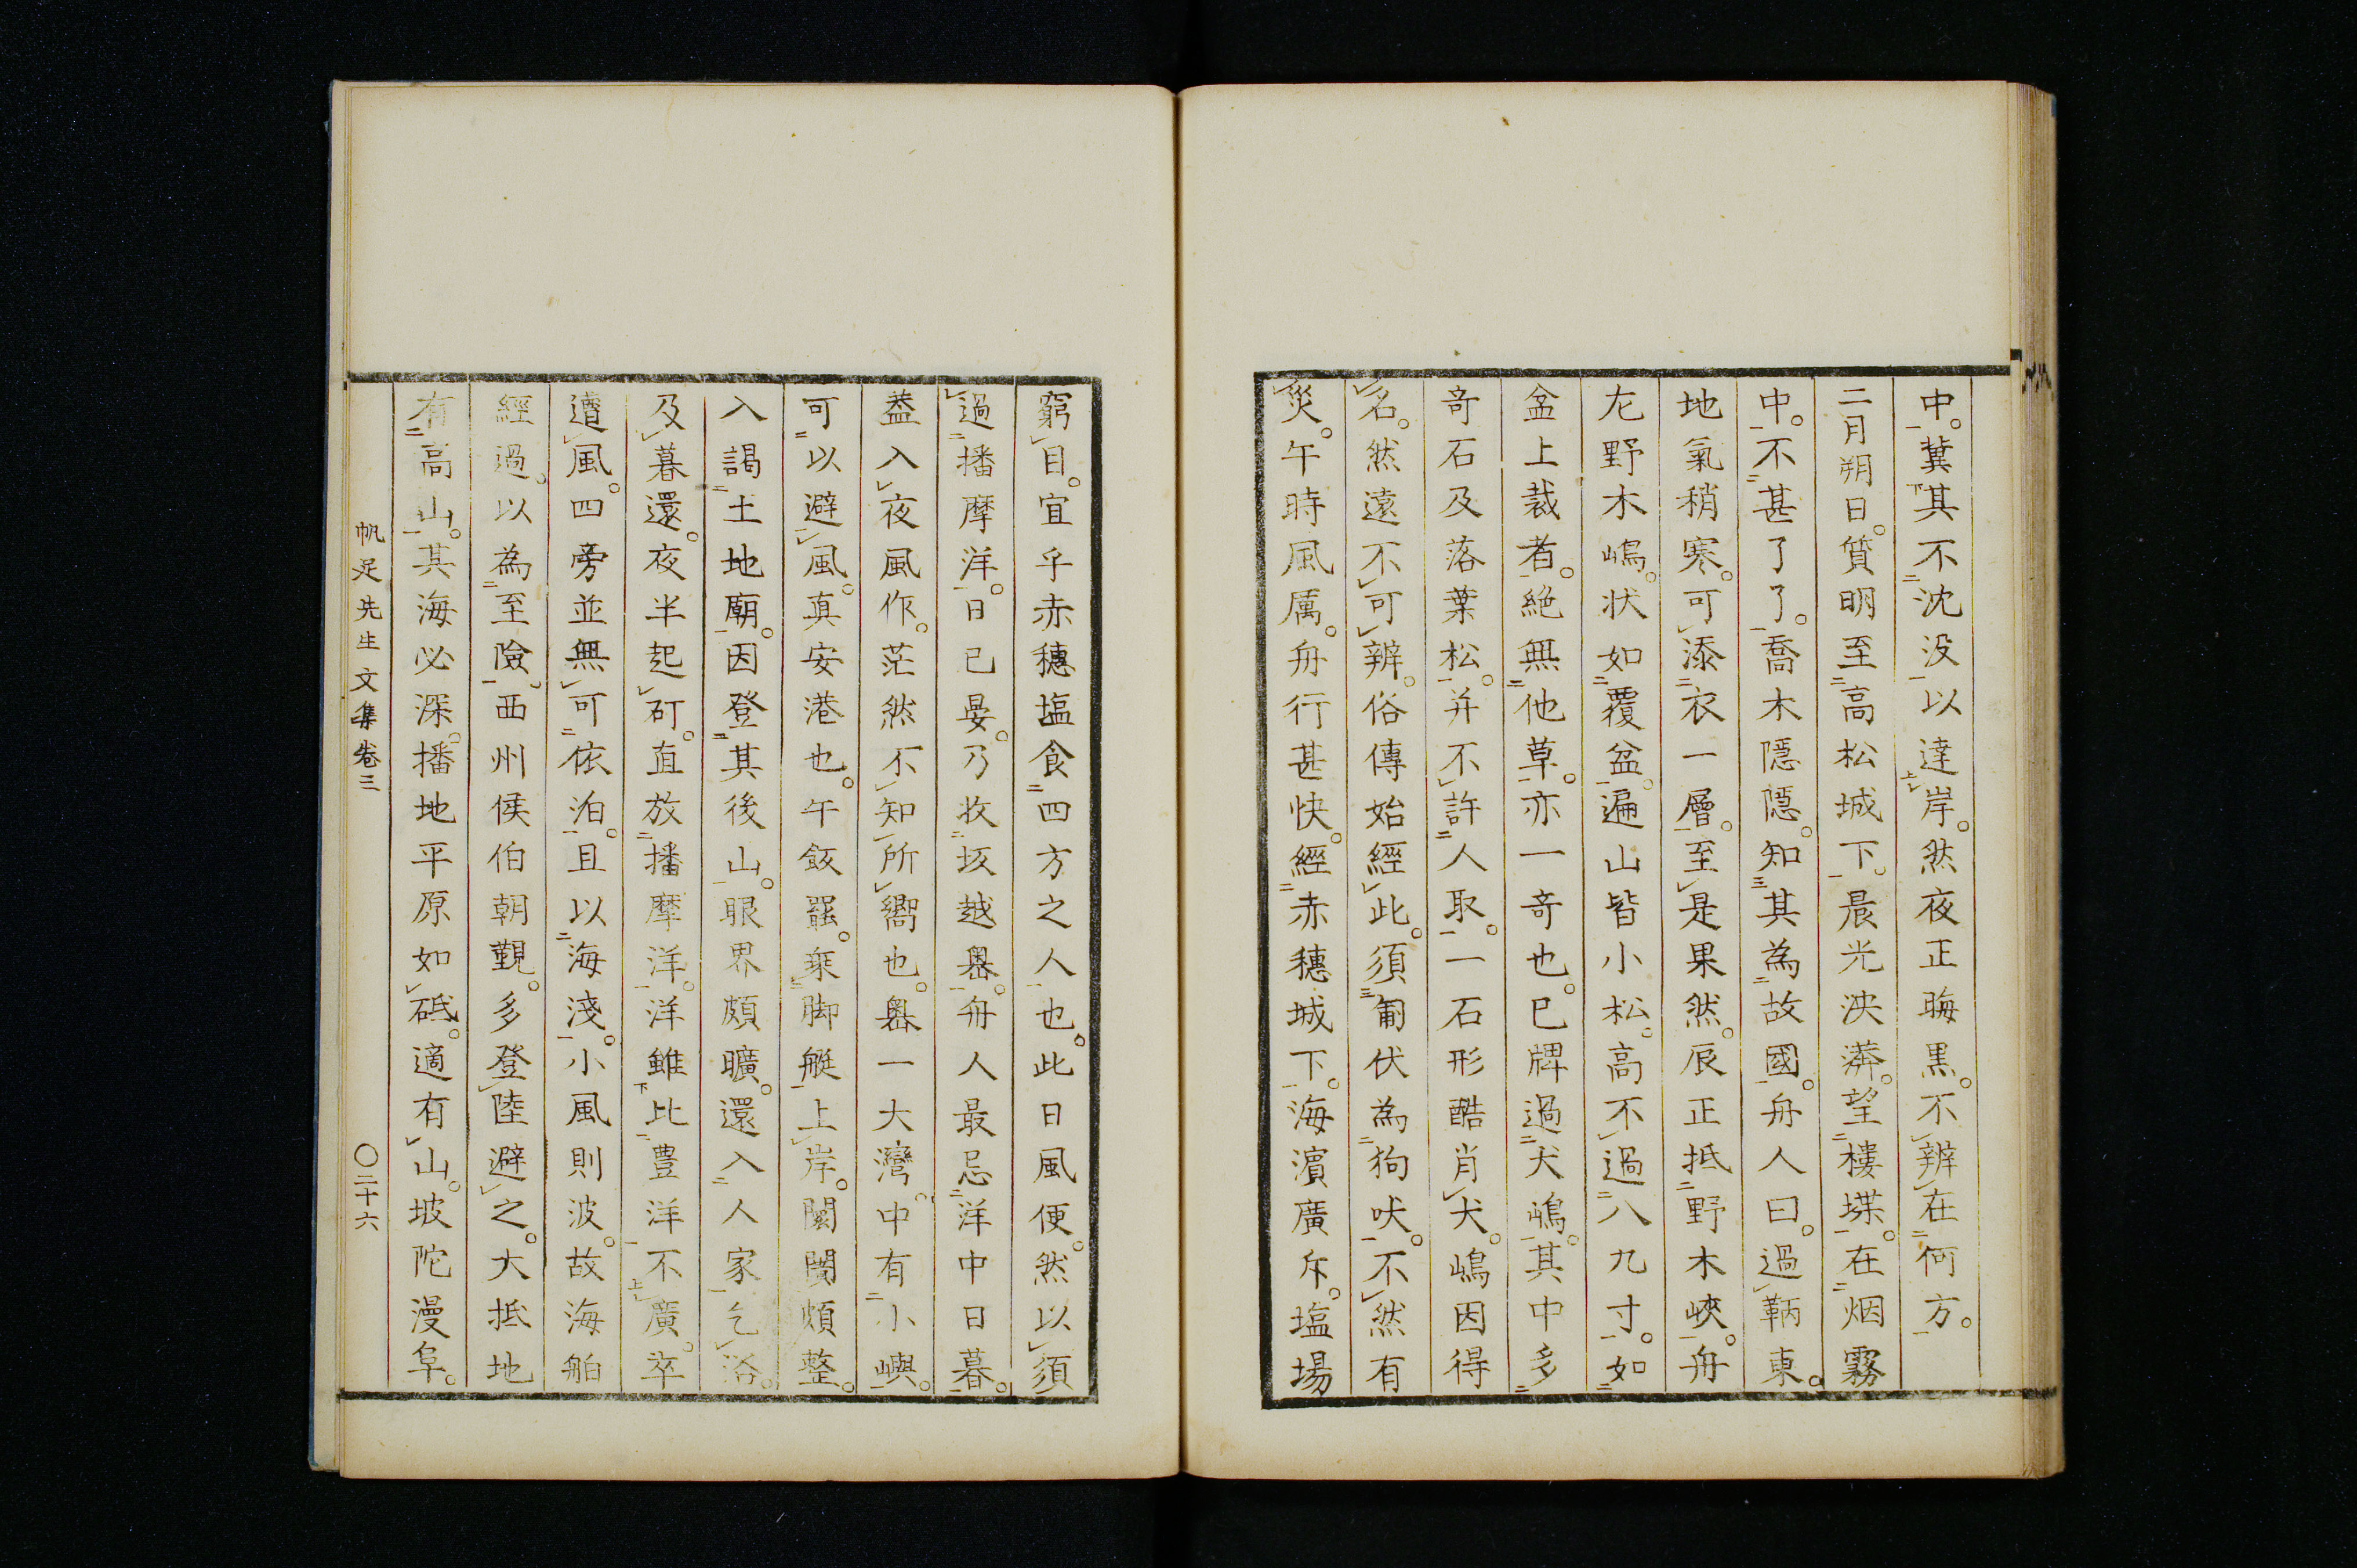 中。冀其不沈没以達岸。然夜正晦黒。不辨在何方。
二月朔日。質明至高松城下。晨光泱漭。望樓堞。在烟霧
中。不甚了了。喬木隠隠。知其為故國。舟人曰。過鞆東。
地氣稍寒。可添衣一層。至是果然。辰正抵野木峽。舟
左野木嶋。状如覆盆。遍山皆小松。高不過八九寸。如
盆上栽者。絶無他草。亦一奇也。巳牌過犬嶋。其中多
奇石及落葉松。并不許人取。一石形酷肖犬。嶋因得
名。然遠不可辨。俗傳始經此。須匍伏為狗吠。不然有
災。午時風厲。舟行甚快。經赤穗城下。海濵廣斥。塩場
窮目。宜乎赤穗塩食四方之人也。此日風便。然以須
過播摩洋。日已晏。乃收坂越嶴。舟人最忌洋中日暮。
葢入夜風作。茫然不知所嚮也。嶴一大灣。中有小嶼。
可以避風。真安港也。午飯罷。乗脚艇上岸。闤闠頗整。
入謁土地廟。因登其後山。眼界頗曠。還入人家乞浴。
及暮還。夜半起矴。直放播摩洋。洋雖比豊洋不廣。卒
遭風。四旁並無可依泊。且以海淺。小風則波。故海舶
經過。以為至險。西州侯伯朝覲。多登陸避之。大抵地
有高山。其海必深。播地平原如砥。適有山。坡陀漫阜。
帆足先生文集卷三
〇二十六